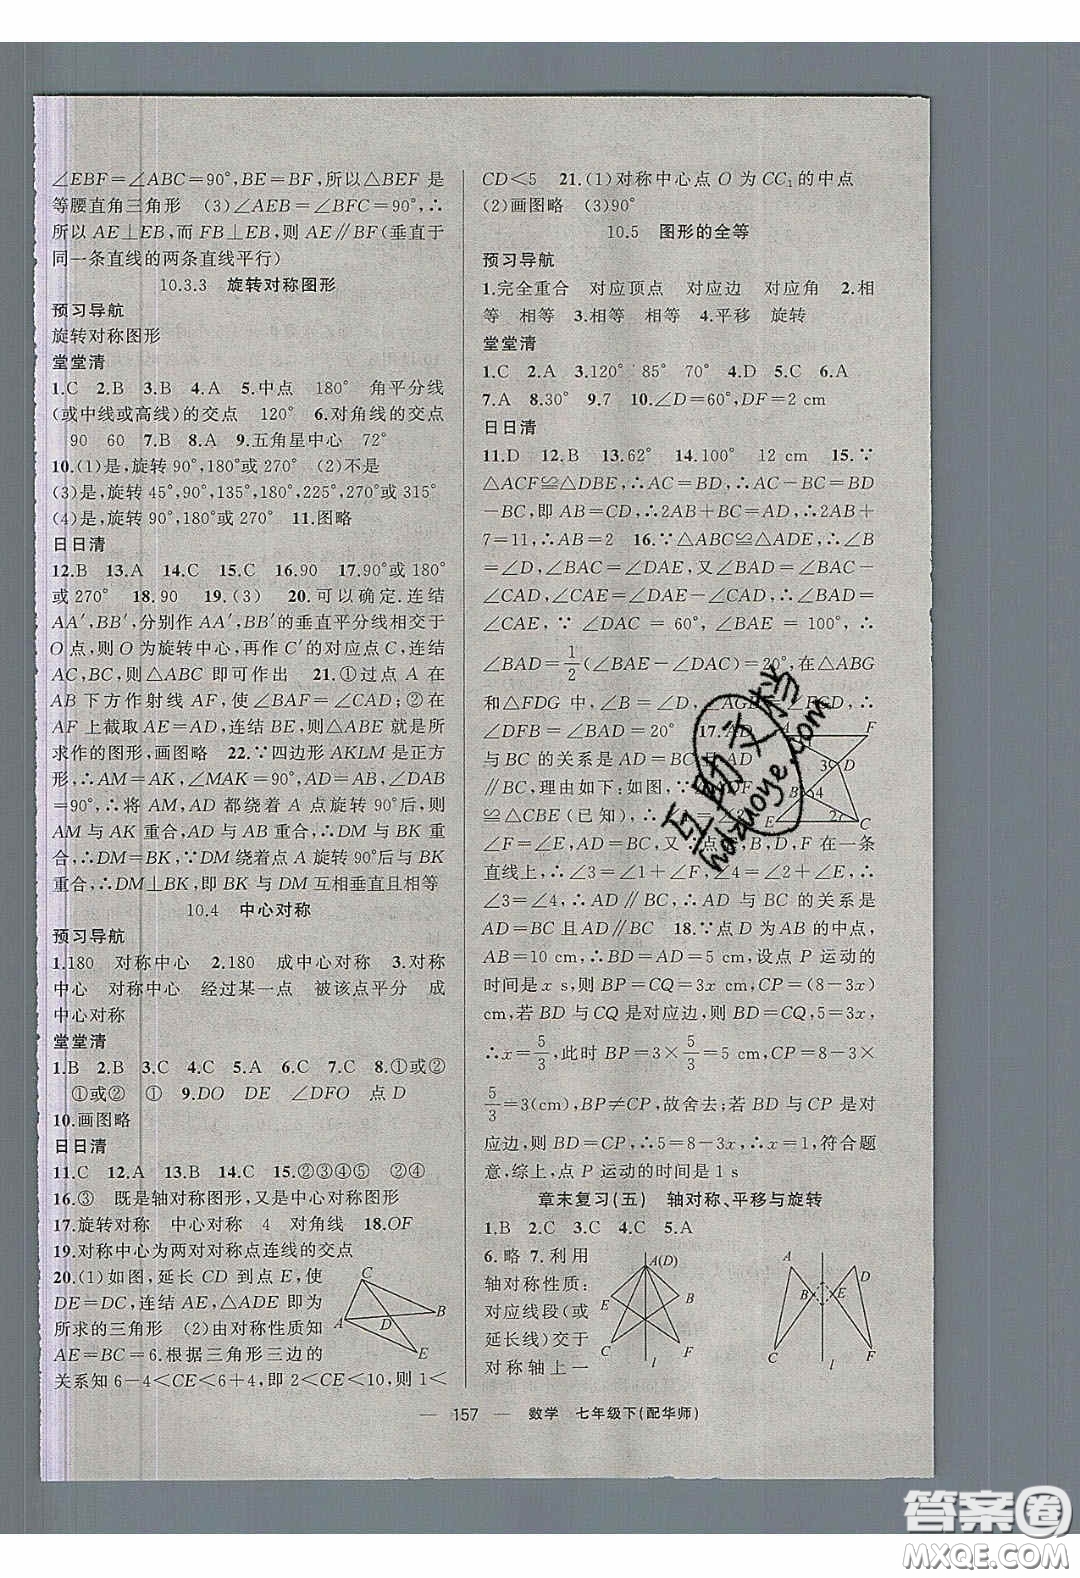 ∠EBF=∠ABC=90°,BE=BF,所以△BEF 是
等腰直角三角形 (3)∠AEB=∠BFC=90°,∴
所以 AE⊥EB,而 FB⊥EB,则 AE∥BF(垂直于
同一条直线的两条直线平行)
10.3.3 旋转对称图形
预习导航
旋转对称图形
堂堂清
1.C 2.B 3.B 4.A 5.中点 180° 角平分线
(或中线或高线)的交点 120° 6.对角线的交点
90 60 7.B 8.A 9.五角星中心 72°
10.(1)是,旋转 90°,180°或 270° (2)不是
(3)是,旋转 45°,90°,135°,180°,225°,270°或 315°
(4)是,旋转 90°,180°或 270° 11.图略
日日清
12.B 13.A 14.C 15.C 16.90 17.90°或 180°
或 270° 18.90 19.(3) 20.可以确定.连结
AA′,BB′,分别作 AA′,BB′的垂直平分线相交于
O 点,则 O 为旋转中心,再作 C′的对应点 C,连结
AC,BC,则△ABC 即可作出 21.①过点 A 在
AB 下方作射线 AF,使∠BAF=∠CAD;②在
AF 上截取 AE=AD,连结 BE,则△ABE 就是所
求作的图形,画图略 22.∵四边形 AKLM 是正方
形,∴AM=AK,∠MAK=90°,∴AD=AB,∠DAB
=90°,∴将 AM,AD 都绕着 A 点旋转 90°后,则
AM 与 AK 重合,AD 与 AB 重合,∴DM 与 BK 重
合,∴DM=BK,DM 绕着点 A 旋转 90°后与 BK
重合,∴DM⊥BK,即 BK 与 DM 互相垂直且相等
10.4 中心对称
预习导航
1.180 对称中心 2.180 成中心对称 3.对称
中心 对称中心 经过某一点 被该点平分 成
中心对称
堂堂清
1.B 2.B 3.C 4.C 5.A 6.C 7.C 8.①或②
①或② ① 9.DO DE ∠DFO 点 D
10.画图略
日日清
11.C 12.A 13.B 14.C 15.②③④⑤ ②④
16.③ 既是轴对称图形,又是中心对称图形
17.旋转对称 中心对称 4 对角线 18.OF
19.对称中心为两对对称点连线的交点
20.(1)如图,延长 CD 到点 E,使
DE=DC,连结 AE,△ADE 即为
所求的三角形 (2)由对称性质知
AE=BC=6.根据三角形三边的
关系知 6-4<CE<6+4,即 2<CE<10,则 1<
C
A D B
E
CD<5 21.(1)对称中心点 O 为 CC₁的中点
(2)画图略 (3)90°
10.5 图形的全等
预习导航
1.完全重合 对应顶点 对应边 对应角 2.相
等 相等 3.相等 相等 4.平移 旋转
堂堂清
1.C 2.A 3.120° 85° 70° 4.D 5.C 6.A
7.A 8.30° 9.7 10.∠D=60°,DF=2 cm
日日清
11.D 12.B 13.62° 14.100° 12 cm 15.∵
△ACF≌△DBE,∴AC=BD,∴AC-BC=BD
-BC,即 AB=CD,∴2AB+BC=AD,∴2AB+
7=11,∴AB=2 16.∵△ABC≌△ADE,∴∠B
=∠D,∠BAC=∠DAE,又∠BAD=∠BAC-
∠CAD,∠CAE=∠DAE-∠CAD,∴∠BAD=
∠CAE,∵∠DAC=60°,∠BAE=100°,∴
∠BAD=1/2(∠BAE-∠DAC)=20°,在△ABG
和△FDG 中,∠B=∠D,∠AGB=∠FGD,∴
∠DFB=∠BAD=20° 17.AD
与 BC 的关系是 AD=BC且AD∥
BC,理由如下:如图,
≌△CBE(已知),∴
∠F=∠E,AD=BC,又∵点 B,D,F 在一条
直线上,∴∠3=∠1+∠F,∠4=∠2+∠E,∴
∠3=∠4,∴AD∥BC,∴AD 与 BC 的关系是
AD=BC 且 AD∥BC 18.∵点 D 为 AB 的中点,
AB=10 cm,∴BD=AD=5 cm,设点 P 运动的
时间是 x s,则 BP=CQ=3x cm,CP=(8-3x)
cm,若 BD 与 CQ 是对应边,则 BD=CQ,5=3x,
∴x=5/3,此时 BP=3×5/3=5 cm,CP=8-3×
5/3=3(cm),BP≠CP,故舍去;若 BD 与 CP 是对
应边,则 BD=CP,∴5=8-3x,∴x=1,符合题
意,综上,点 P 运动的时间是 1 s
F
3 D
B 4
E 2 C
章末复习(五) 轴对称、平移与旋转
1.B 2.C 3.C 4.C 5.A
6.略 7.利用
轴对称性质:
对应线段(或
延长线)交于
对称轴上一
A(D)
E B
C F
l
A D
B E
C l F
— 157 — 数学 七年级下(配华师)
互助文档
hdzuoye.com
答案圈
MXQE.COM